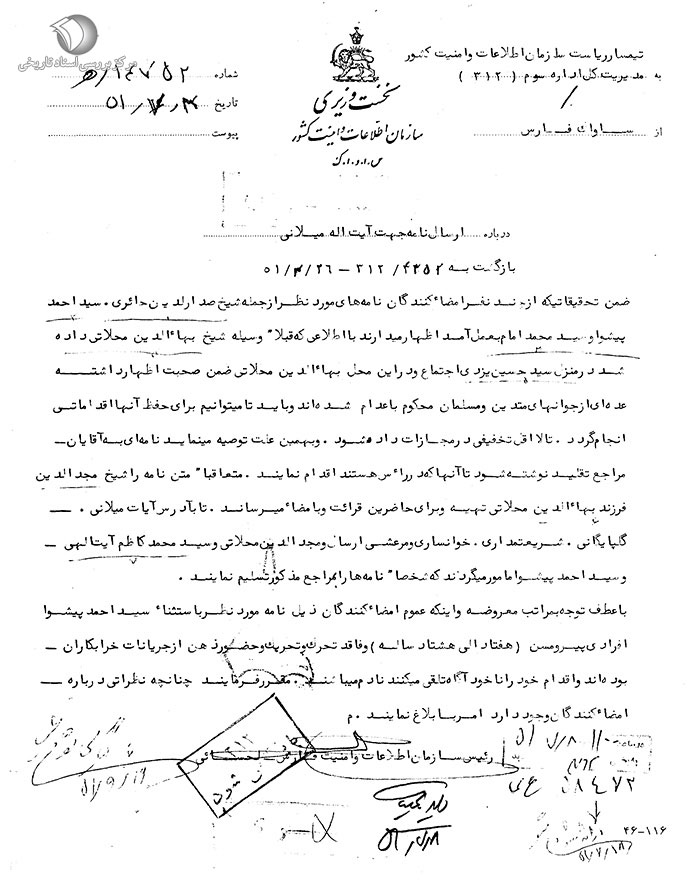 مرکز بررسی اسناد تاریخی
تیمسار ریاست سازمان اطلاعات و امنیت کشور
به مدیریت کل اداره سوم ( ۳۱۲ )
از ساواک فارس
نخست وزیری
سازمان اطلاعات و امنیت کشور
س.ا.و.ا.ک
شماره ۱۴۷۵۲/ه
تاریخ
پیوست
درباره ارسال نامه جهت آیت اله میلانی
بازگشت به ۴۲۵۲/ ۳۱۲ – ۵۱/۴/۲۶
ضمن تحقیقاتیکه از چند نفر امضاء کنندگان نامه های مورد نظر از جمله شیخ صدرالدین حائری . سید احمد
پیشوا و سید محمد امام بعمل آمد اظهار میدارند با اطلاعی که قبلا" وسیله شیخ بهاءالدین محلاتی داده
شد در منزل سید حسین یزدی اجتماع و در این محل بهاءالدین محلاتی ضمن صحبت اظهار داشته
عده ای از جوانهای متدین و مسلمان محکوم باعدام شده اند و باید تا میتوانیم برای حفظ آنها اقداماتی
انجام گردد . تا لااقل تخفیفی در مجازات داده شود . و بهمین علت توصیه مینماید نامه ای به آقایان –
مراجع تقلید نوشته شود تا آنها که در راس هستند اقدام نمایند . متعاقبا" متن نامه را شیخ مجدالدین
فرزند بهاءالدین محلاتی تهیه و برای حاضرین قرائت و بامضاء میرساند . تا بآدرس آیات میلانی . —
گلپایگانی . شریعتمداری . خوانساری و مرعشی ارسال و مجدالدین محلاتی و سید محمد کاظم آیت الهی —
و سید احمد پیشوا مامور میگردند که شخصا" نامه ها را بمراجع مذکور تسلیم نمایند .
با عطف توجه بمراتب معروضه و اینکه عموم امضاء کنندگان ذیل نامه مورد نظر باستثناء سید احمد پیشوا
افرادی پیر و مسن ( هفتاد الی هشتاد ساله ) و فاقد تحرک و تحریک و حضور ذهن از جریانات خرابکاران —
بوده اند و اقدام خود را ناخودآگاه تلقی میکنند نادم میباشند . مقرر فرمایند چنانچه نظراتی درباره —
امضاء کنندگان وجود دارد امر بابلاغ نمایند . م
رئیس سازمان اطلاعات و امنیت فارس
۳۱۲
۵۸۴۷۲
۴۶-۱۱۶